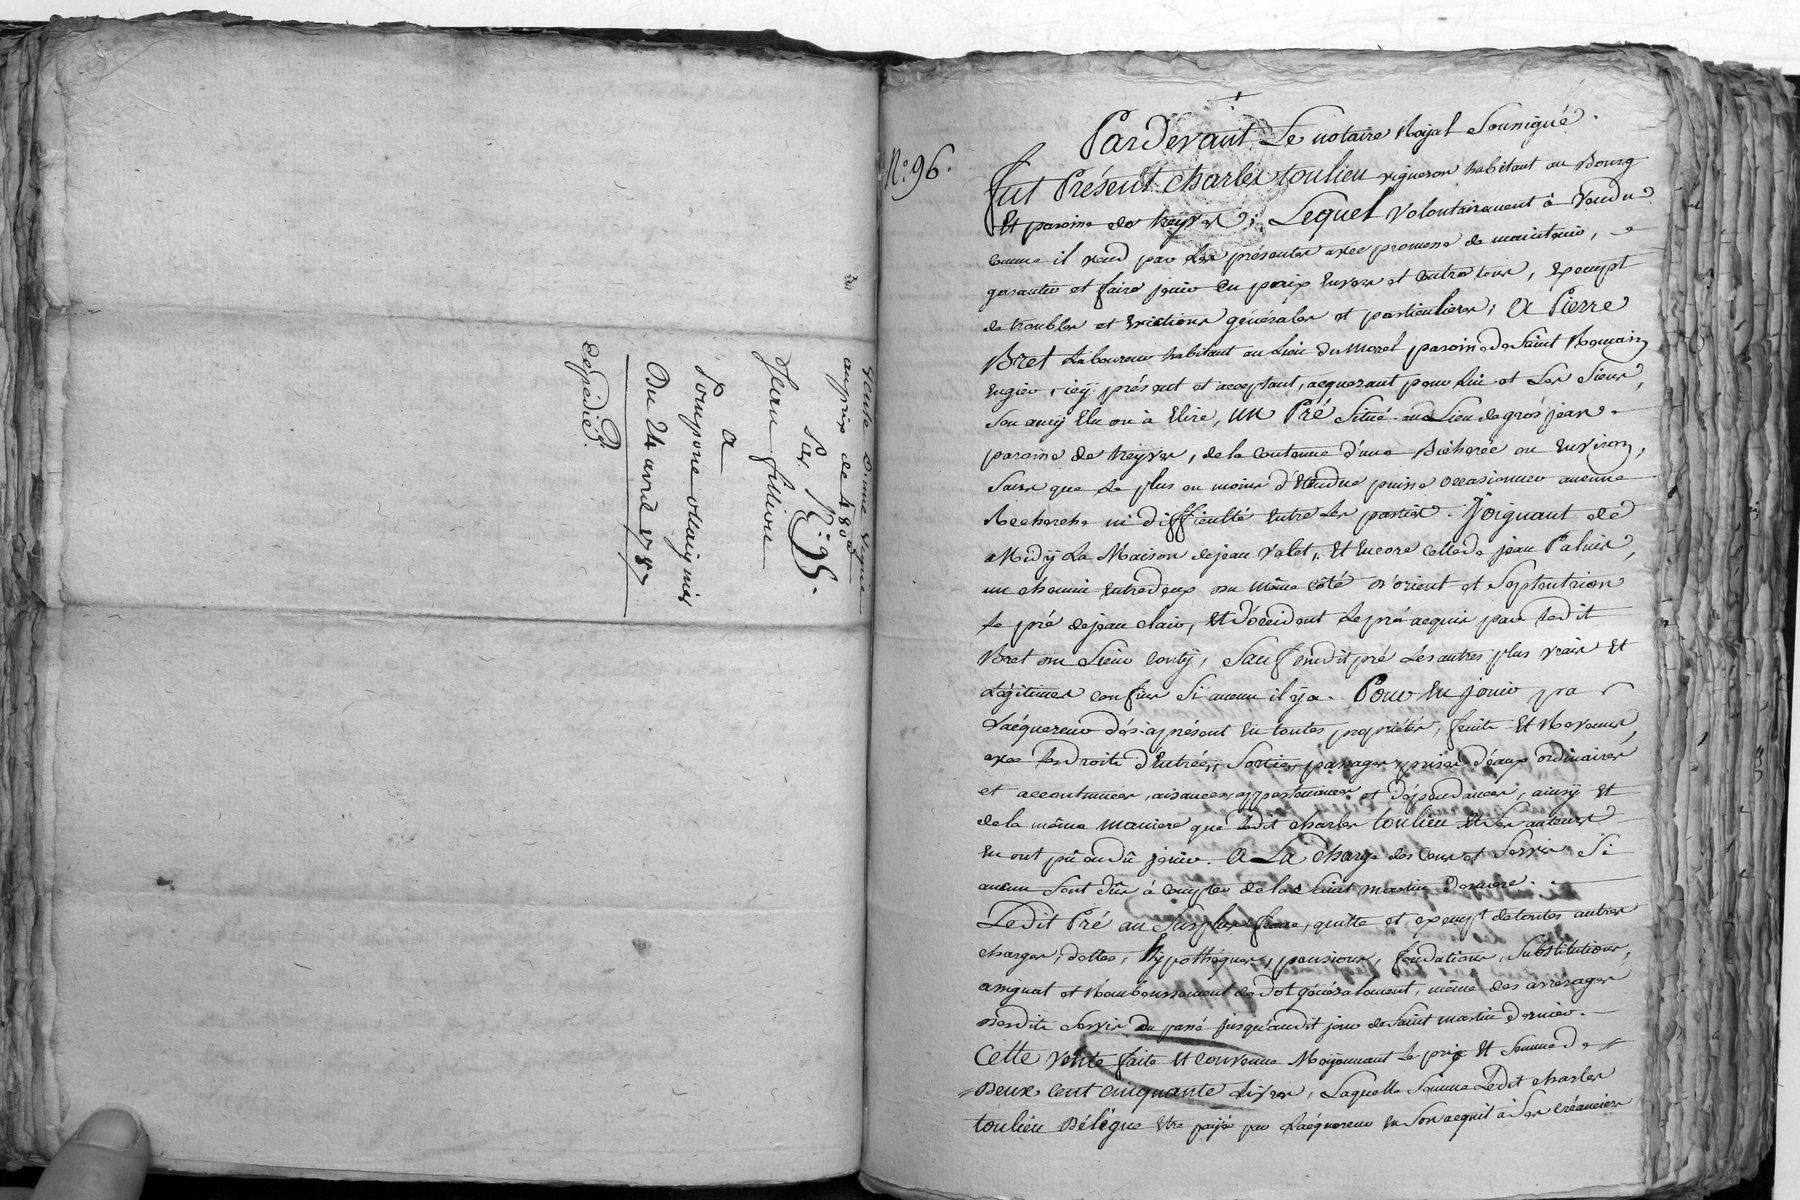 Vente d'une vigne
au prix de 480ᵗᵗ
par N.o 95.
Jean fillion
a
Pompone
Du 24 avril 1787
Expédié.
N.o 96.
Pardevant Le notaire Royal Soussigné.
fut Présent Charles toulieu vigneron habitant au Bourg
Et paroisse de treyves; Lequel volontairement à vendu
comme il vend par Les présentes avec promesse de maintenir,
garantir et faire jouir en paix Envers et contre tous, Exempt
de troubles et Evictions générales et particulieres; A Pierre
Bret Laboureur habitant au Lieu du morel paroisse de Saint Romain
Engier, icy présent et acceptant, acquerant pour Lui et Les Siens,
Son amy Elu ou à Elire, un Pré Situé au Lieu de gros jean
paroisse de treyves, de la contenue d'une Bicherée ou Environ,
Sans que Le plus ou moins d'Etendue puisse occasionner aucune
Recherche ni difficulté Entre Les parties. Joignant de
Midy La Maison de jean valet, Et Encore Celle de jean Palais,
un chemin Entredeux au même côté d'orient et Septentrion
Le pré de jean clair, Et d'occident Le pré acquis par Ledit
Bret du Sieur Conty, Sauf dudit pré Les autres plus vrais Et
Légitimes confins Si aucun il y a. Pour En jouir par
L'acquereur dès-àprésent En toutes propriétés, fruits Et Revenus
avec Les droits d'Entrées, Sorties, passages, prises d'eaux ordinaires
et accoutumées, aisances, appartenances et dépendances, ainsy Et
de la même maniere que Ledit charles toulieu Et Ses auteurs
En ont pû ou dû jouir. A La charge des Cens et Servis Si
aucun Sont dûs à compter de la Saint martin derniere.
Ledit Pré au Surplus franc, quitte et exempt de toutes autres
charges, dettes, hypothéques, pensions, fondations, Substitutions,
augment et Remboursement de dot généralement, même des arrerages
desdits Servis du passé jusqu'audit jour de Saint martin dernier.
Cette vente faite Et Convenue Moyennant Le prix Et Somme de
Deux Cent cinquante Livres, Laquelle Somme Ledit charles
toulieu Délégue Etre payée par L'acquereur En Son acquit à Ses créanciers